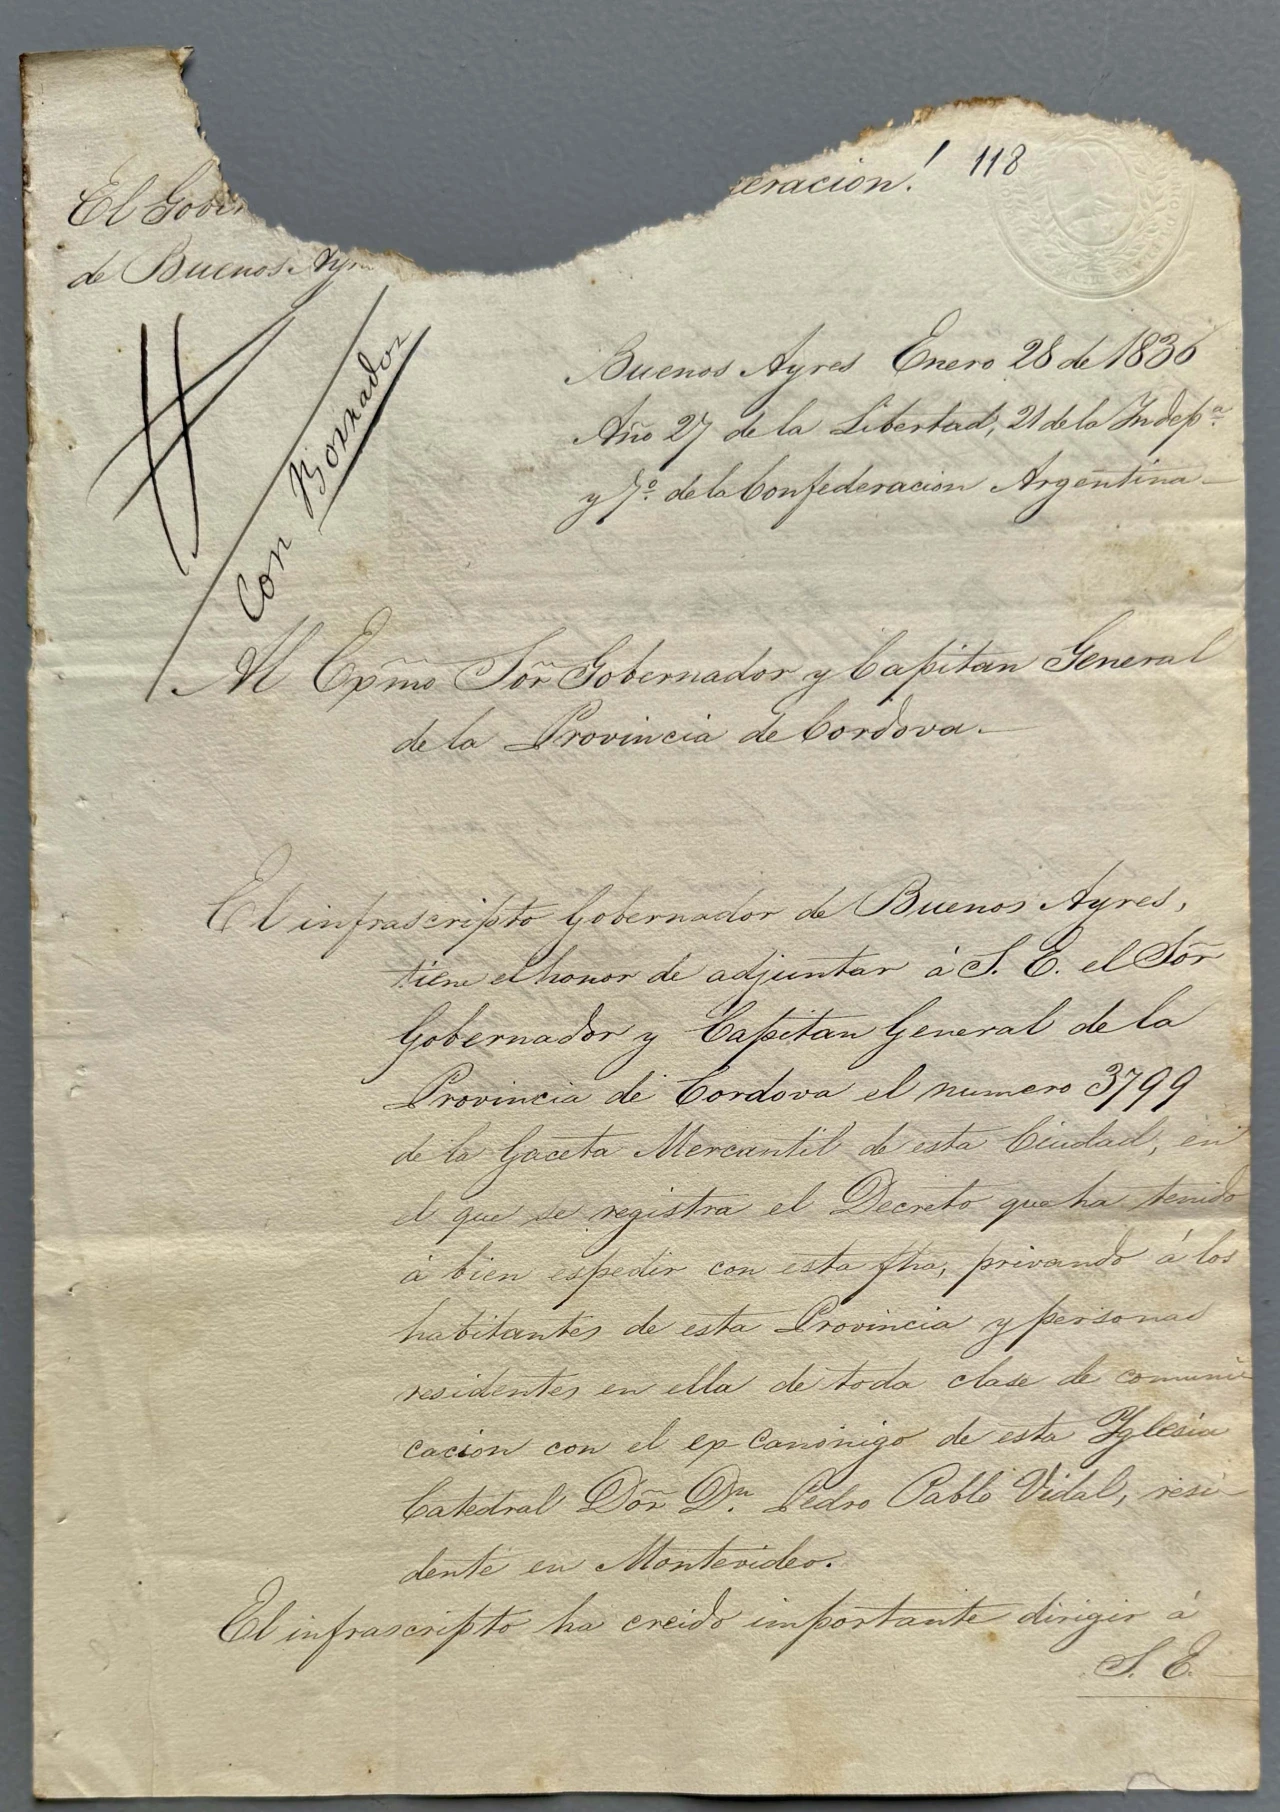 eracion!
118
El Gober
de Buenos Ayre
Con Borrador
Buenos Ayres Enero 28 de 1836
Año 27 de la Libertad, 21 de la Indepª
y 7º de la Confederacion Argentina
Al Exp̃mo Sõr Gobernador y Capitan General
de la Provincia de Cordova.
El infrascripto Gobernador de Buenos Ayres,
tiene el honor de adjuntar á S. E. el Sõr
Gobernador y Capitan General de la
Provincia de Cordova el numero 3799
de la Gaceta Mercantil de esta Ciudad, en
el que se registra el Decreto que ha tenido
á bien espedir con esta fha, privando á los
habitantes de esta Provincia y personas
residentes en ella de toda clase de comuni
cacion con el ex Canonigo de esta Yglesia
Catedral Dõr Dn. Pedro Pablo Vidal, resi-
dente en Montevideo.
El infrascripto ha creido importante dirigir á
S. E.